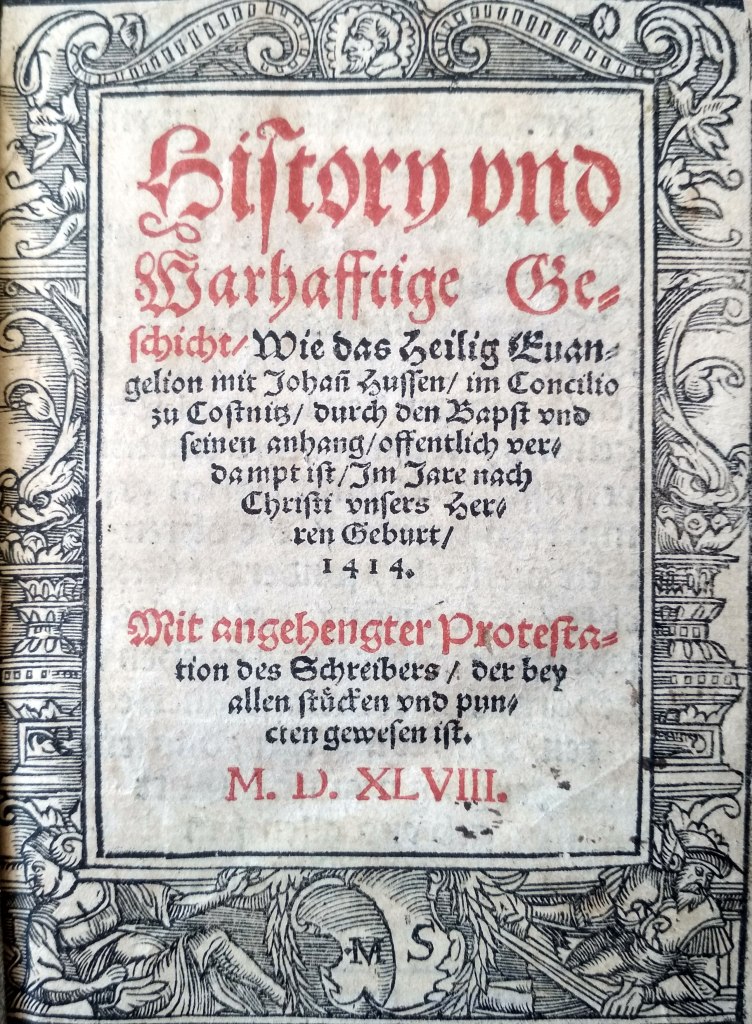 Hiſtory vnd
Warhafftige Ge-
ſchicht/ Wie das Heilig Euan-
gelion mit Johan̄ Huſſen/ im Concilio
zu Coſtnitz/ durch den Bapſt vnd
ſeinen anhang/ offentlich ver-
dampt iſt/ Im Jare nach
Chriſti vnſers Her-
ren Geburt/
1414.
Mit angehengter Proteſta-
tion des Schreibers/ der bey
allen ſtuͤcken vnd pun-
cten geweſen iſt.
M. D. XLVIII.
M S